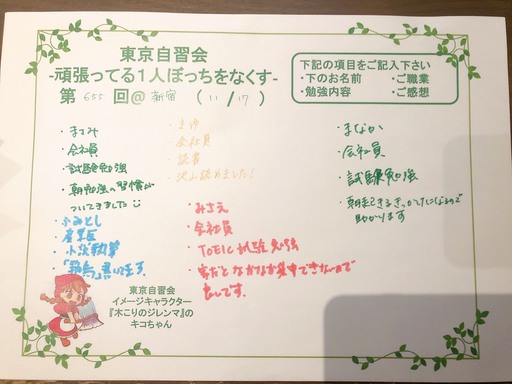 東京自習会
-頑張ってる1人ぼっちをなくす-
第 655 回@ 新宿 ( 11 / 17 )
下記の項目をご記入下さい
・下のお名前 ・ご職業
・勉強内容 ・ご感想
・まさみ
・会社員
・試験勉強
・朝勉強の習慣が
ついてきました
・まゆ
・会社員
・読書
・沢山読めました!
・まなか
・会社員
・試験勉強
・朝起きるきっかけになるので
助かります
・ふみとし
・小説執筆
・みさえ
・会社員
・TOEIC 試験勉強
・家だとなかなか集中できないので
良いです。
東京自習会
イメージキャラクター
『木こりのジレンマ』の
キコちゃん